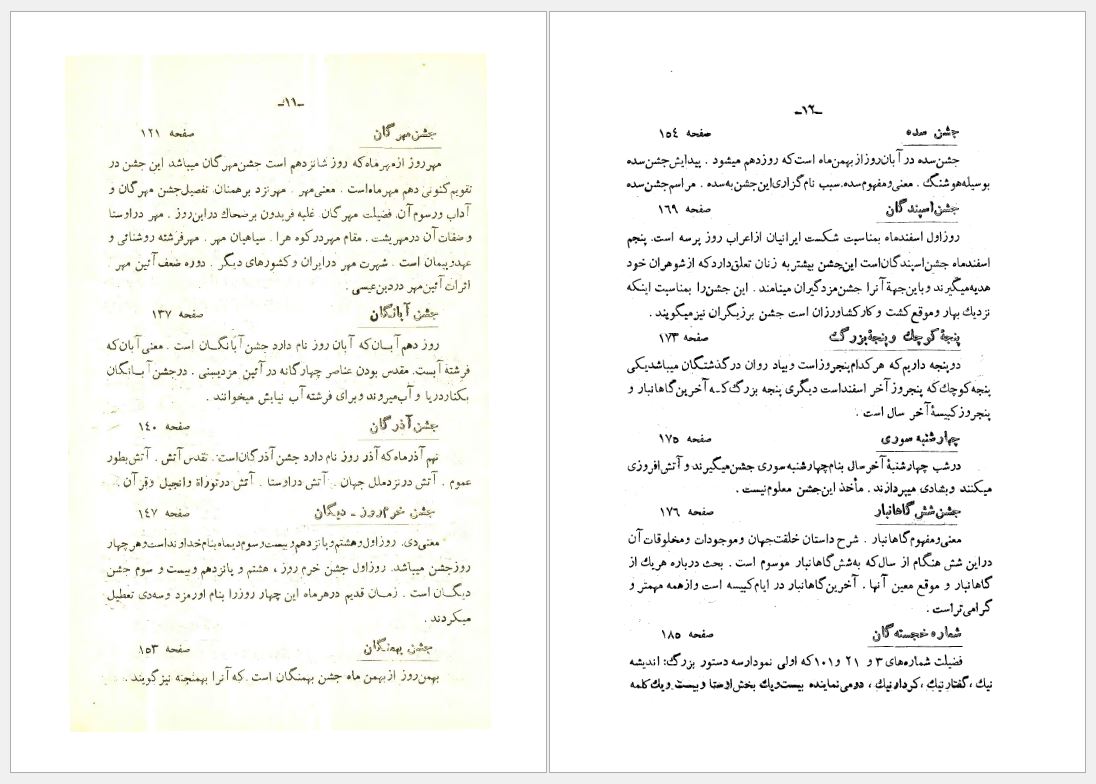 -۱۱-
جشن مهرگان صفحه ۱۲۱
مهر روز از مهر ماه که روز شانزدهم است جشن مهرگان میباشد این جشن در
تقویم کنونی دهم مهر ماه است . معنی مهر . مهر نزد برهمنان . تفصیل جشن مهرگان و
آداب ورسوم آن. فضیلت مهرگان. غلبه فریدون برضحاک دراین روز . مهر در اوستا
و صفات آن در مهریشت . مقام مهر در کوه هرا . سپاهیان مهر . مهر فرشته روشنائی و
عهدوپیمان است . شهرت مهر درایران و کشورهای دیگر . دوره ضعف آئین مهر .
اثرات آئین مهر در دین عیسی .
جشن آبانگان صفحه ۱۳۷
روز دهم آبان که آبان روز نام دارد جشن آبانگان است . معنی آبان که
فرشتهٔ آبست. مقدس بودن عناصر چهارگانه در آئین مزدیسنی . درجشن آبانگان
بکنار دریا و آب میروند و برای فرشته آب نیایش میخوانند .
جشن آذرگان صفحه ۱۴۰
نهم آذرماه که آذر روز نام دارد جشن آذرگان است . تقدس آتش . آتش بطور
عموم . آتش در نزد ملل جهان . آتش در اوستا . آتش در توراة وانجیل وقرآن .
جشن خرم روز - دیگان صفحه ۱۴۷
معنی دی. روز اول وهشتم و پانزدهم و بیست وسوم دیماه بنام خداوند است و هر چهار
روز جشن میباشد. روز اول جشن خرم روز ، هشتم و پانزدهم وبیست و سوم جشن
دیگان است . زمان قدیم درهرماه این چهار روز را بنام اورمزد وسه دی تعطیل
میکردند .
جشن بهمنگان صفحه ۱۵۳
بهمن روز از بهمن ماه جشن بهمنگان است که آنرا بهمنجنه نیز گویند .
-۱۲-
جشن سده صفحه ۱۵۴
جشن سده در آبان روز از بهمن ماه است که روز دهم میشود . پیدایش جشن سده
بوسیله هوشنگ . معنی ومفهوم سده. سبب نام گزاری این جشن به سده . مراسم جشن سده
جشن اسپندگان صفحه ۱۶۹
روز اول اسفندماه بمناسبت شکست ایرانیان از اعراب روز پرسه است. پنجم
اسفندماه جشن اسپندگان است این جشن بیشتر به زنان تعلق دارد که از شوهران خود
هدیه میگیرند و باین جهة آنرا جشن مزدگیران مینامند . این جشن را بمناسبت اینکه
نزدیک بهار و موقع کشت و کار کشاورزان است جشن برزیگران نیز میگویند .
پنجهٔ کوچک و پنجهٔ بزرگ صفحه ۱۷۳
دو پنجه داریم که هر کدام پنجروز است و بیاد روان درگذشتگان میباشد یکی
پنجه کوچک که پنجروز آخر اسفند است دیگری پنجه بزرگ که آخرین گاهانبار و
پنجروز کبیسهٔ آخر سال است .
چهارشنبه سوری صفحه ۱۷۵
درشب چهارشنبهٔ آخر سال بنام چهارشنبه سوری جشن میگیرند و آتش افروزی
میکنند و بشادی میپردازند . مأخذ این جشن معلوم نیست .
جشن شش گاهانبار صفحه ۱۷۶
معنی ومفهوم گاهانبار . شرح داستان خلقت جهان وموجودات ومخلوقات آن
دراین شش هنگام از سال که به شش گاهانبار موسوم است . بحث درباره هریک از
گاهانبار و موقع معین آنها . آخرین گاهانبار در ایام کبیسه است و از همه مهمتر و
گرامی تر است .
شماره خجسته گان صفحه ۱۸۵
فضیلت شماره های ۳ و ۲۱ و ۱۰۱ که اولی نمودار سه دستور بزرگ: اندیشه
نیک ، گفتار نیک ، کردار نیک ، دومی نماینده بیست ویک بخش اوستا و بیست ویک کلمه